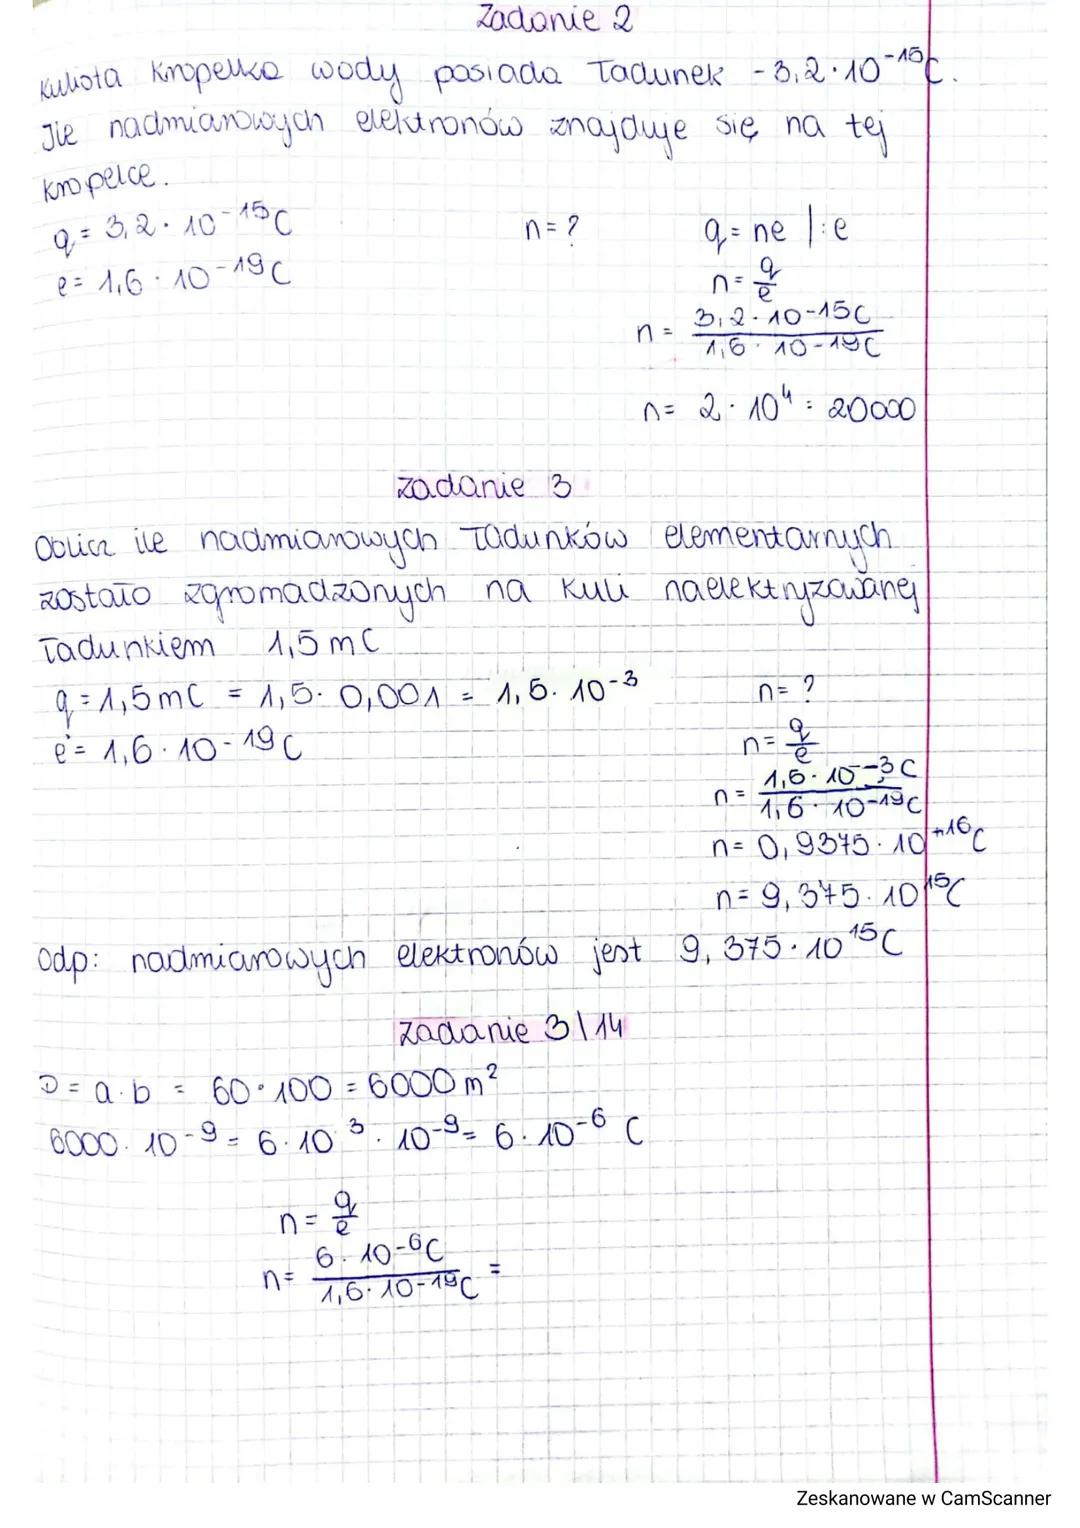 Zadanie 2
Kulista kropelka wody posiada ładunek -3,2·10⁻¹⁵C.
Ile nadmiarowych elektronów znajduje się na tej
kropelce.
q = 3,2·10⁻¹⁵C
n = ?
q = ne |:e
e = 1,6·10⁻¹⁹C
n = q/e
n = 3,2·10-15C / 1,6·10-19C
n = 2·10⁴ = 20000
Zadanie 3
Oblicz ile nadmiarowych ładunków elementarnych
zostało zgromadzonych na kuli naelektryzowanej
ładunkiem 1,5mC
q = 1,5mC = 1,5·0,001 = 1,5·10⁻³
n = ?
e = 1,6·10⁻¹⁹C
n = q/e
n = 1,5·10⁻³C / 1,6·10⁻¹⁹C
n = 0,9375·10⁺¹⁶C
n = 9,375·10¹⁵C
Odp: nadmiarowych elektronów jest 9,375·10¹⁵C
Zadanie 3|14
D = a·b = 60·100 = 6000m²
6000·10⁻⁹ = 6·10³·10⁻⁹ = 6·10⁻⁶ C
n = q/e
n = 6·10⁻⁶C / 1,6·10⁻¹⁹C =
Zeskanowane w CamScanner